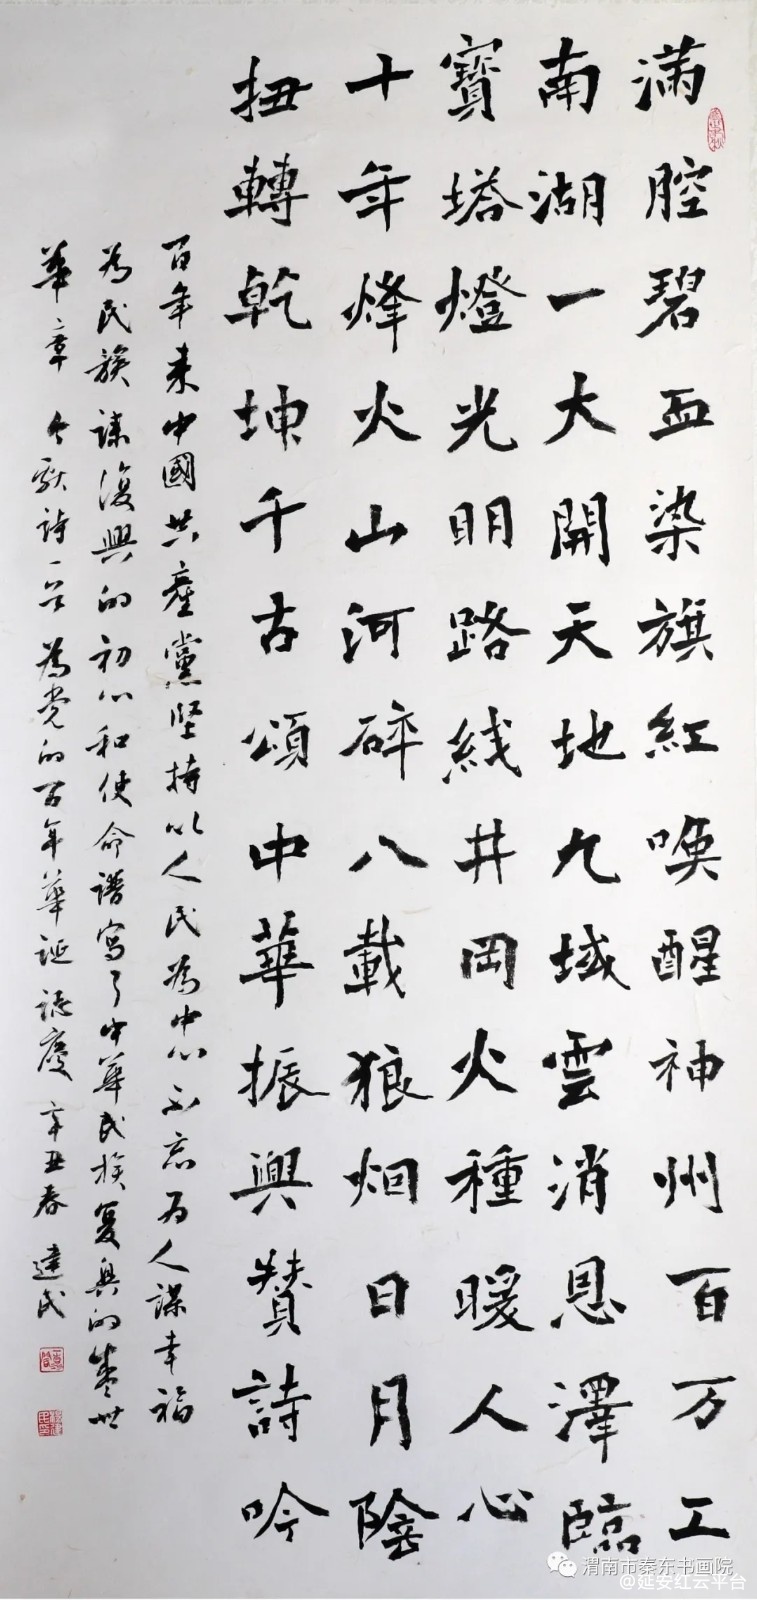 滿腔碧血染旗紅喚醒神州百万工
南湖一大開天地九域雲消恩澤臨
寶塔燈光明路线井岡火種暖人心
十年烽火山河碎八載狼烟日月陰
扭轉乾坤千古頌中華振興贊詩吟
百年来中國共產黨坚持以人民為中心不忘为人謀幸福
為民族謀復興的初心和使命譜寫了中華民族复興的盛世
華章 今獻詩一首 為党的百年華誕誌慶 辛丑春 建民
渭南市秦东书画院
@延安红云平台